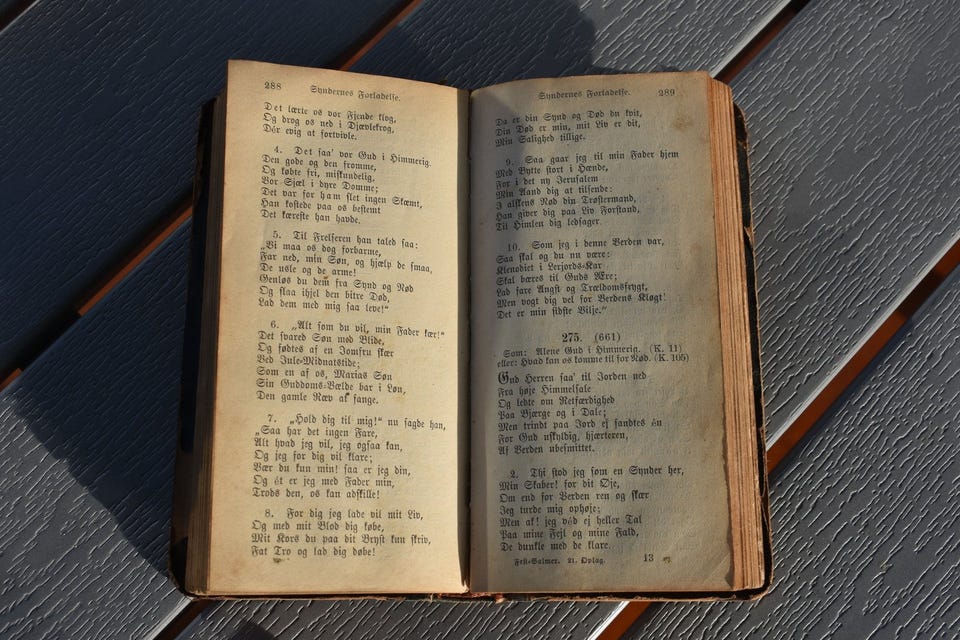 288 Syndernes Forladelse.
Det lærte os vor Fjende klog,
Og drog os ned i Djævlekrog,
Dér evig at fortvivle.
4. Det saa' vor Gud i Himmerig.
Den gode og den fromme,
Og købte fri, miskundelig.
Vor Sjæl i dyre Domme;
Det var for ham slet ingen Skæmt,
Han kostede paa os bestemt
Det kæreste han havde.
5. Til Frelseren han taled saa:
„Vi maa os dog forbarme,
Far ned, min Søn, og hjælp de smaa,
De usle og de arme!
Genløs du dem fra Synd og Nød
Og slaa ihjel den bitre Død,
Lad dem med mig saa leve!“
6. „Alt som du vil, min Fader kær!“
Det svared Søn med Blide,
Og fødtes af en Jomfru skær
Ved Jule-Midnatstide;
Som en af os, Marias Søn
Sin Guddoms-Vælde bar i Løn,
Den gamle Ræv at fange.
7. „Hold dig til mig!“ nu sagde han,
„Saa har det ingen Fare,
Alt hvad jeg vil, jeg ogsaa kan,
Og jeg for dig vil klare;
Vær du kun min! saa er jeg din,
Og ét er jeg med Fader min,
Trods den, os kan adskille!
8. For dig jeg lade vil mit Liv,
Og med mit Blod dig købe,
Mit Kors du paa dit Bryst kun skriv,
Fat Tro og lad dig døbe!
Syndernes Forladelse. 289
Da er din Synd og Død du kvit,
Din Død er min, mit Liv er dit,
Min Salighed tillige.
9. Saa gaar jeg til min Fader hjem
Med Bytte stort i Hænde,
For i det ny Jerusalem
Min Aand dig at tilsende:
I alskens Nød din Trøstermand,
Han giver dig paa Liv Forstand,
Til Himlen dig ledsager.
10. Som jeg i denne Verden var,
Saa skal og du nu være:
Klenodiet i Lerjords-Kar
Skal bæres til Guds Ære;
Lad fare Angst og Trældomsfrygt,
Men vogt dig vel for Verdens Kløgt!
Det er min sidste Vilje.“
275. (661)
Som: Alene Gud i Himmerig. (K. 11)
eller: Hvad kan os komme til for Nød. (K. 105)
Gud Herren saa' til Jorden ned
Fra høje Himmelsale
Og ledte om Retfærdighed
Paa Bjærge og i Dale;
Men trindt paa Jord ej fandtes én
For Gud uskyldig, hjærteren,
Af Verden ubesmittet.
2. Thi stod jeg som en Synder her,
Min Skaber! for dit Øje,
Om end for Verden ren og skær
Jeg turde mig ophøje;
Men ak! jeg véd ej heller Tal
Paa mine Fejl og mine Fald,
De dunkle med de klare.
Fest-Salmer. 21. Oplag. 13